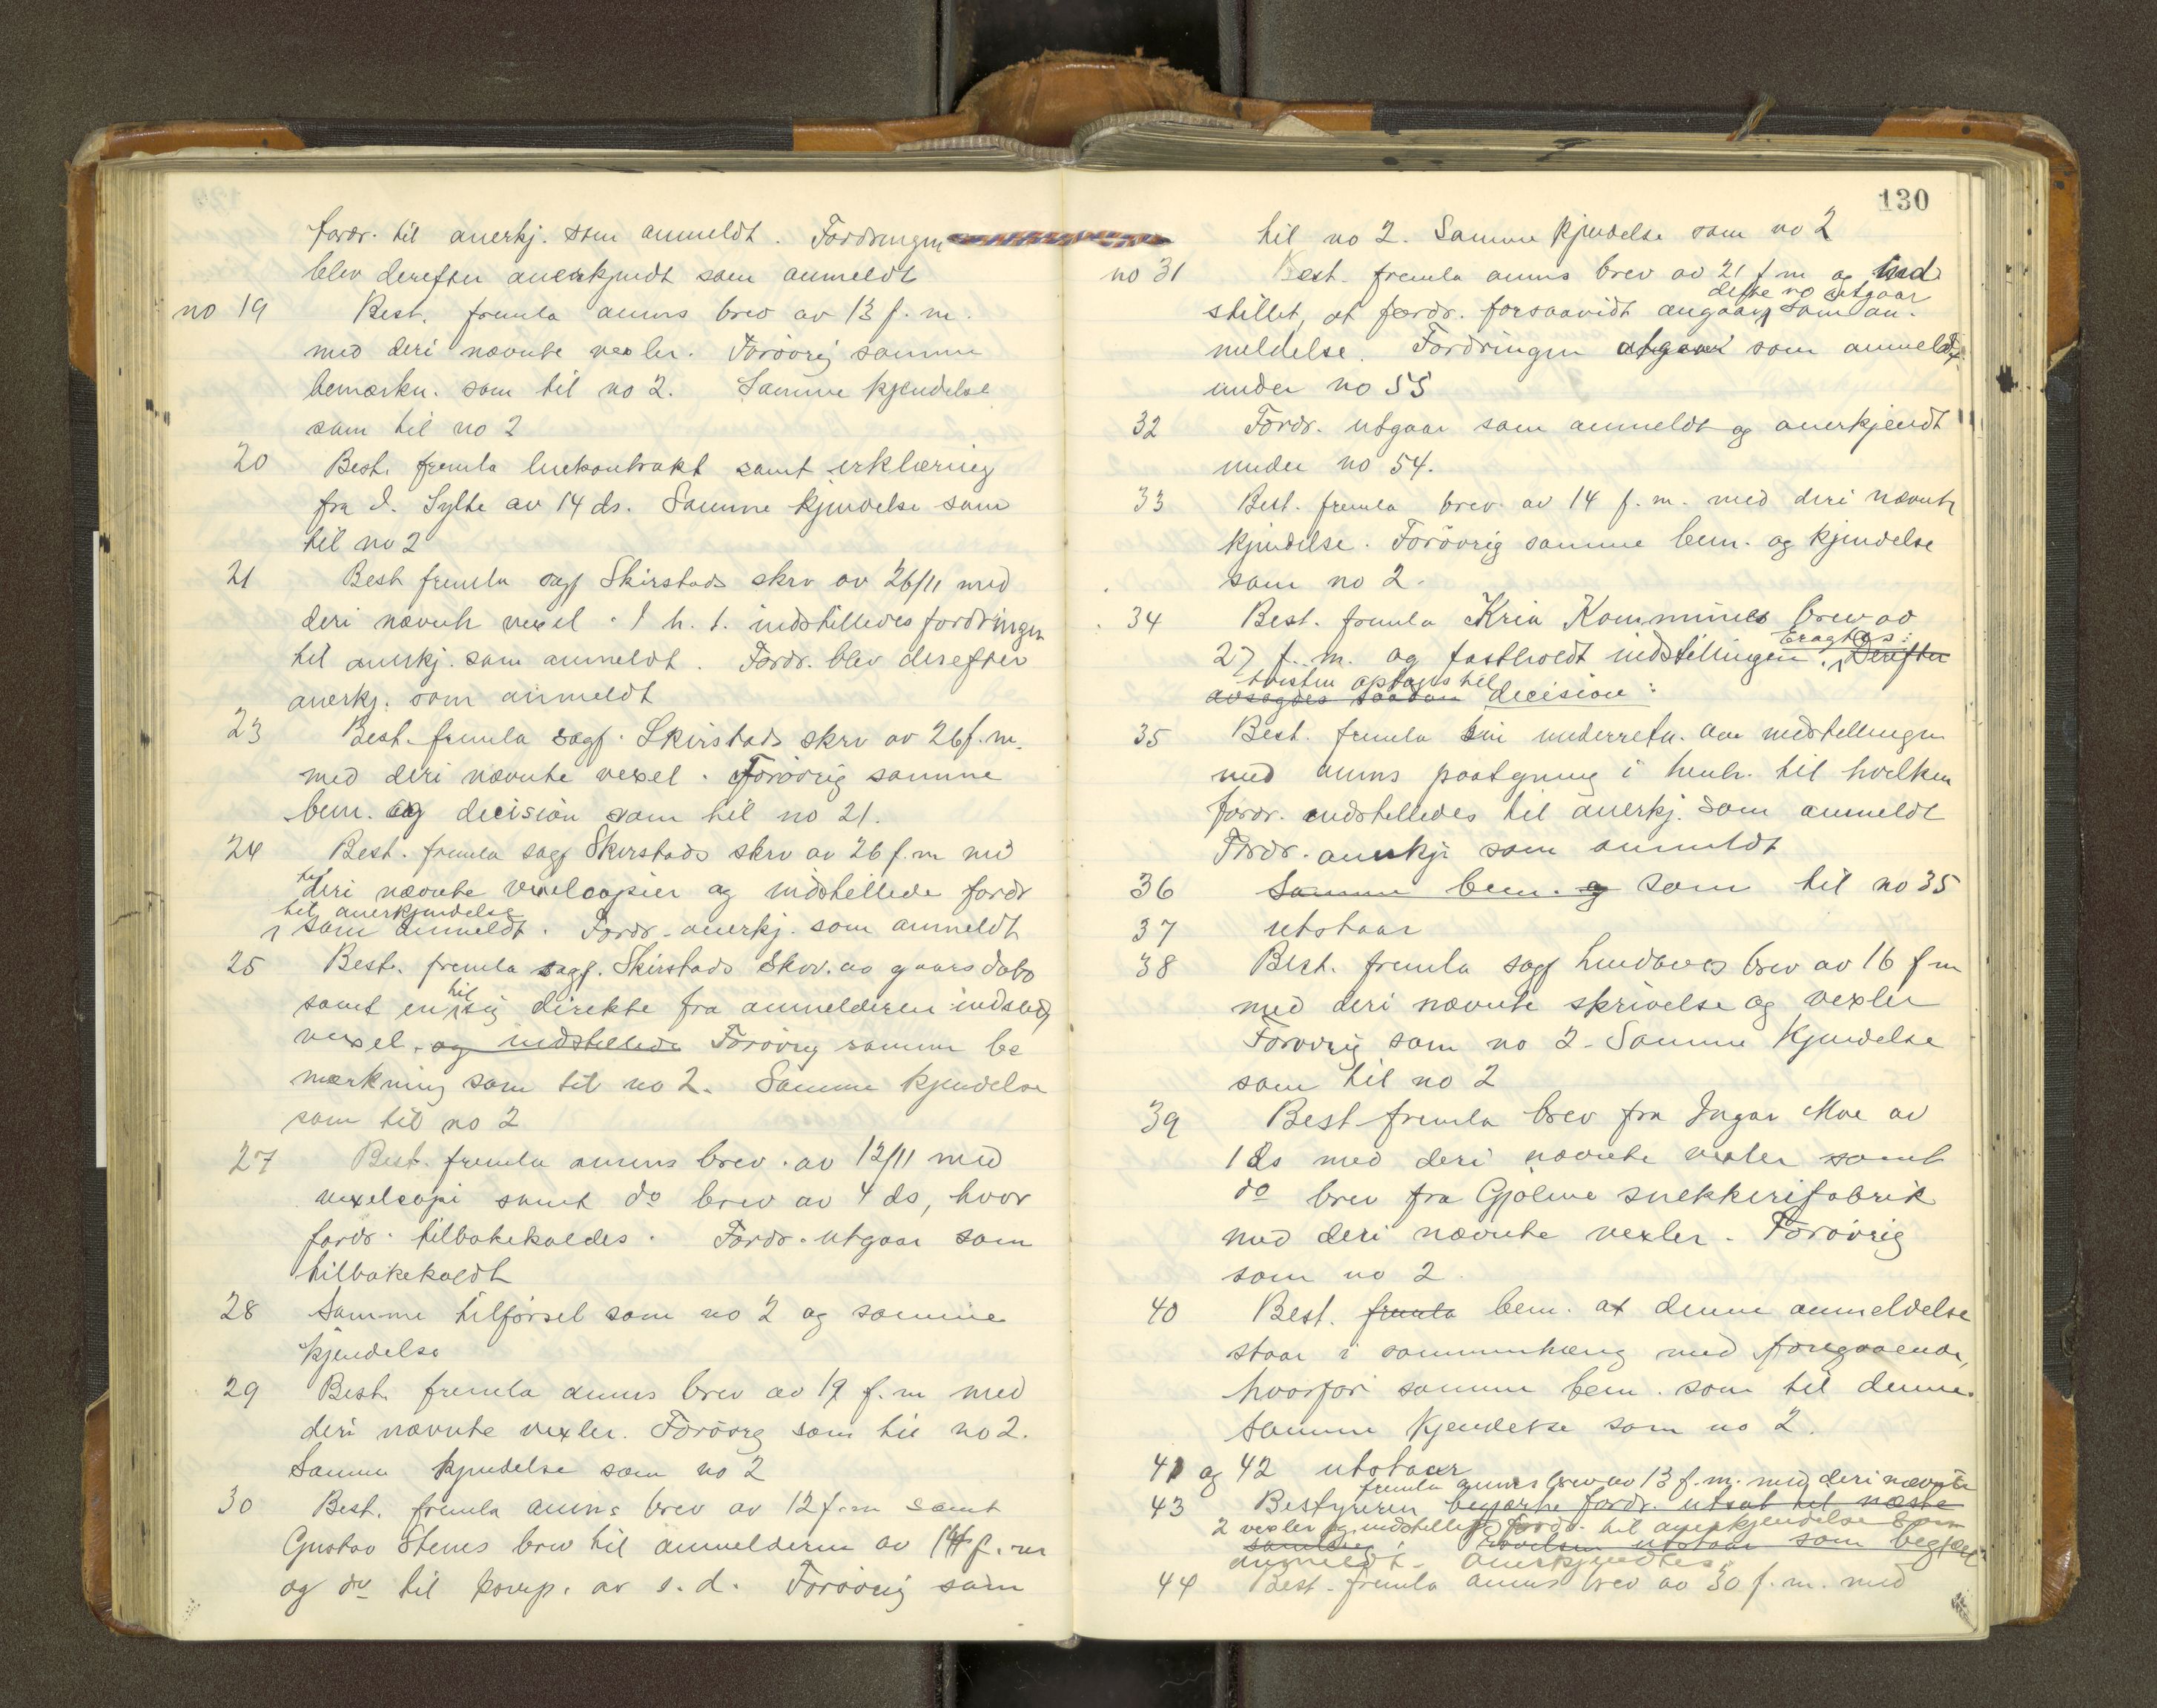 fordr. til anerkj. som anmeldt. Fordringen
blev derefter anerkjendt som anmeldt
no 19 Best. fremla anms brev av 13 f. m.
med deri nævnte vexler. Forøvrig samme
bemærkn. som til no 2. Samme kjendelse
som til no 2
20 Best. fremla leiekontrakt samt erklæring
fra I. Sylte av 14 ds. Samme kjendelse som
til no 2
21 Best fremla sagf Skirstads skrv av 26/11 med
deri nævnte vexel. I h. t. indstilledes fordringen
til anerkj. som anmeldt. Fordr. blev derefter
anerkj. som anmeldt
23 Best. fremla sagf. Skirstads skrv av 26 f. m.
med deri nævnte vexel. Forøvrig samme
bem. og decision som til no 21.
24 Best. fremla sagf Skirstads skrv av 26 f. m med
deri nævnte vexelcopier og indstillede fordr
til anerkjendelse
som anmeldt. Fordr. anerkj. som anmeldt
25 Best. fremla sagf. Skirstads skrv. av gaars dato
samt en til sig direkte fra anmelderen indsendt
vexel. og indstillede Forøvrig samme be
mærkning som til no 2. Samme kjendelse
som til no 2
27 Best. fremla anms brev. av 12/11 med
vexelcopi samt do brev av 4 ds, hvor
fordr. tilbakekaldes. Fordr. utgaar som
tilbakekaldt
28 Samme tilførsel som no 2 og samme
kjendelse
29 Best. fremla anms brev av 19 f. m med
deri nævnte vexler. Forøvrg som til no 2.
Samme kjendelse som no 2
30 Best. fremla anms brev av 12 f. m samt
Gustav Stenes brev til anmelderen av 14 f. m
og do til komp. av s. d. Forøvrig som
130
til no 2. Samme kjendelse som no 2
no 31 Best. fremla anms brev av 21 f m og ind
dette no utgaar
stillet, at fordr. forsaavidt angaar som an-
meldelse. Fordringen utgaar som anmeldt
under no 55
32 Fordr. utgaar som anmeldt og anerkjendt
under no 54.
33 Best. fremla brev. av 14 f. m. med deri nævnte
kjendelse. Forøvrig samme bem. og kjendelse
som no 2.
34 Best. fremla Kria Kommunes brev av
Eragtes:
27 f. m. og fastholdt indstillingen. Derefter
tvisten optages til
avsagdes saadan decision:
35 Best. fremla sin underretn. om indstillingen
med anms paategning i henh. til hvilken
fordr. indstilledes til anerkj. som anmeldt
Fordr. anerkj. som anmeldt
36 Samme bem. og som til no 35
37 utstaar
38 Best. fremla sagf brev av 16 f m
med deri nævnte skrivelse og vexler
Forøvrig som no 2. Samme kjendelse
som til no 2
39 Best fremla brev fra Ingar Moe av
1 ds med deri nævnte vexler samt
do brev fra Gjølme snekkerifabrik
med deri nævnte vexler. Forøvrig
som no 2.
40 Best. fremla bem. at denne anmeldelse
staar i sammenhæng med foregaaende,
hvorfor samme bem. som til denne.
Samme kjendelse som no 2.
41 og 42 utstaar
fremla anms brev av 13 f. m. med deri nævnte
43 Bestyreren begjærte fordr. utsat til næste
2 vexler og indstillet fordr. til anerkjendelse som
samling. utstaar som begjært
anmeldt. Anerkjendtes.
44 Best. fremla anms brev av 30 f. m. med